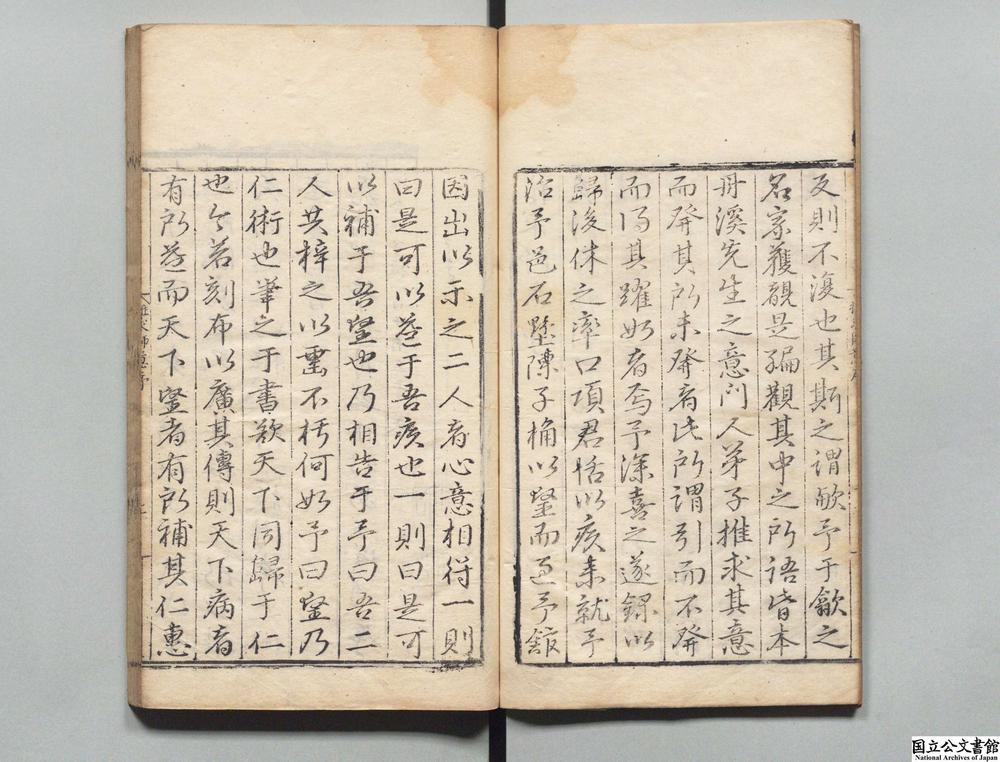 反則不復也其斯之謂歟予于歙之
名家獲覩是編觀其中之所語皆本
丹溪先生之意門人弟子推求其意
而發其所未發者此所謂引而不發
而得其躍如者焉予深喜之遂録以
歸後休之率口項君恬以疾來就予
治予邑石墅陳子桷以醫而至予館
因出以示之二人者心意相得一則
曰是可以益于吾疾也一則曰是可
以補于吾醫也乃相告于予曰吾二
人共梓之以圖不朽何如予曰醫乃
仁術也筆之于書欲天下同歸于仁
也今若刻布以廣其傳則天下病者
有所益而天下醫者有所補其仁惠
推求師意序
国立公文書館
National Archives of Japan